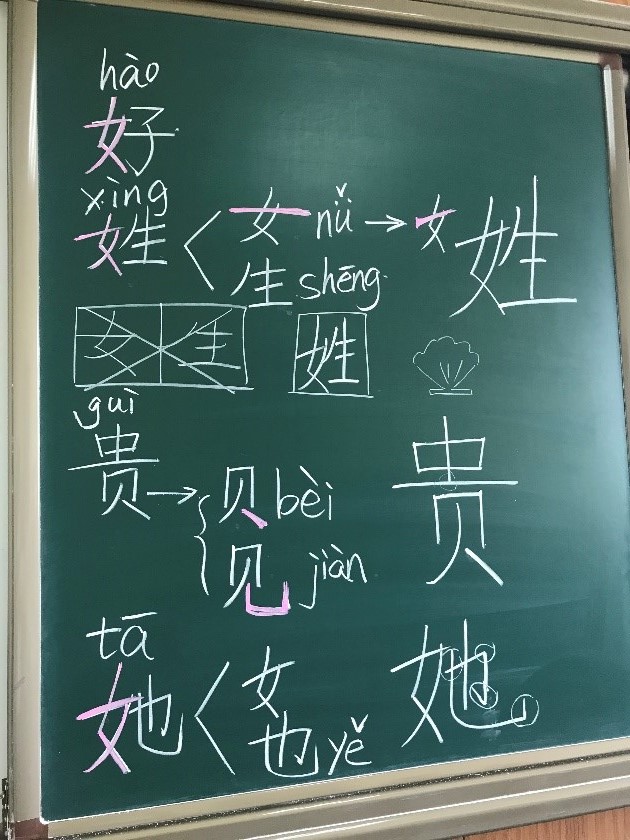 hào
好
xìng
姓 女 nǚ → 女 姓
生 shēng
女 生 姓
guì
贵 → 贝 bèi 贵
见 jiàn
tā
她 女 她
也 yě